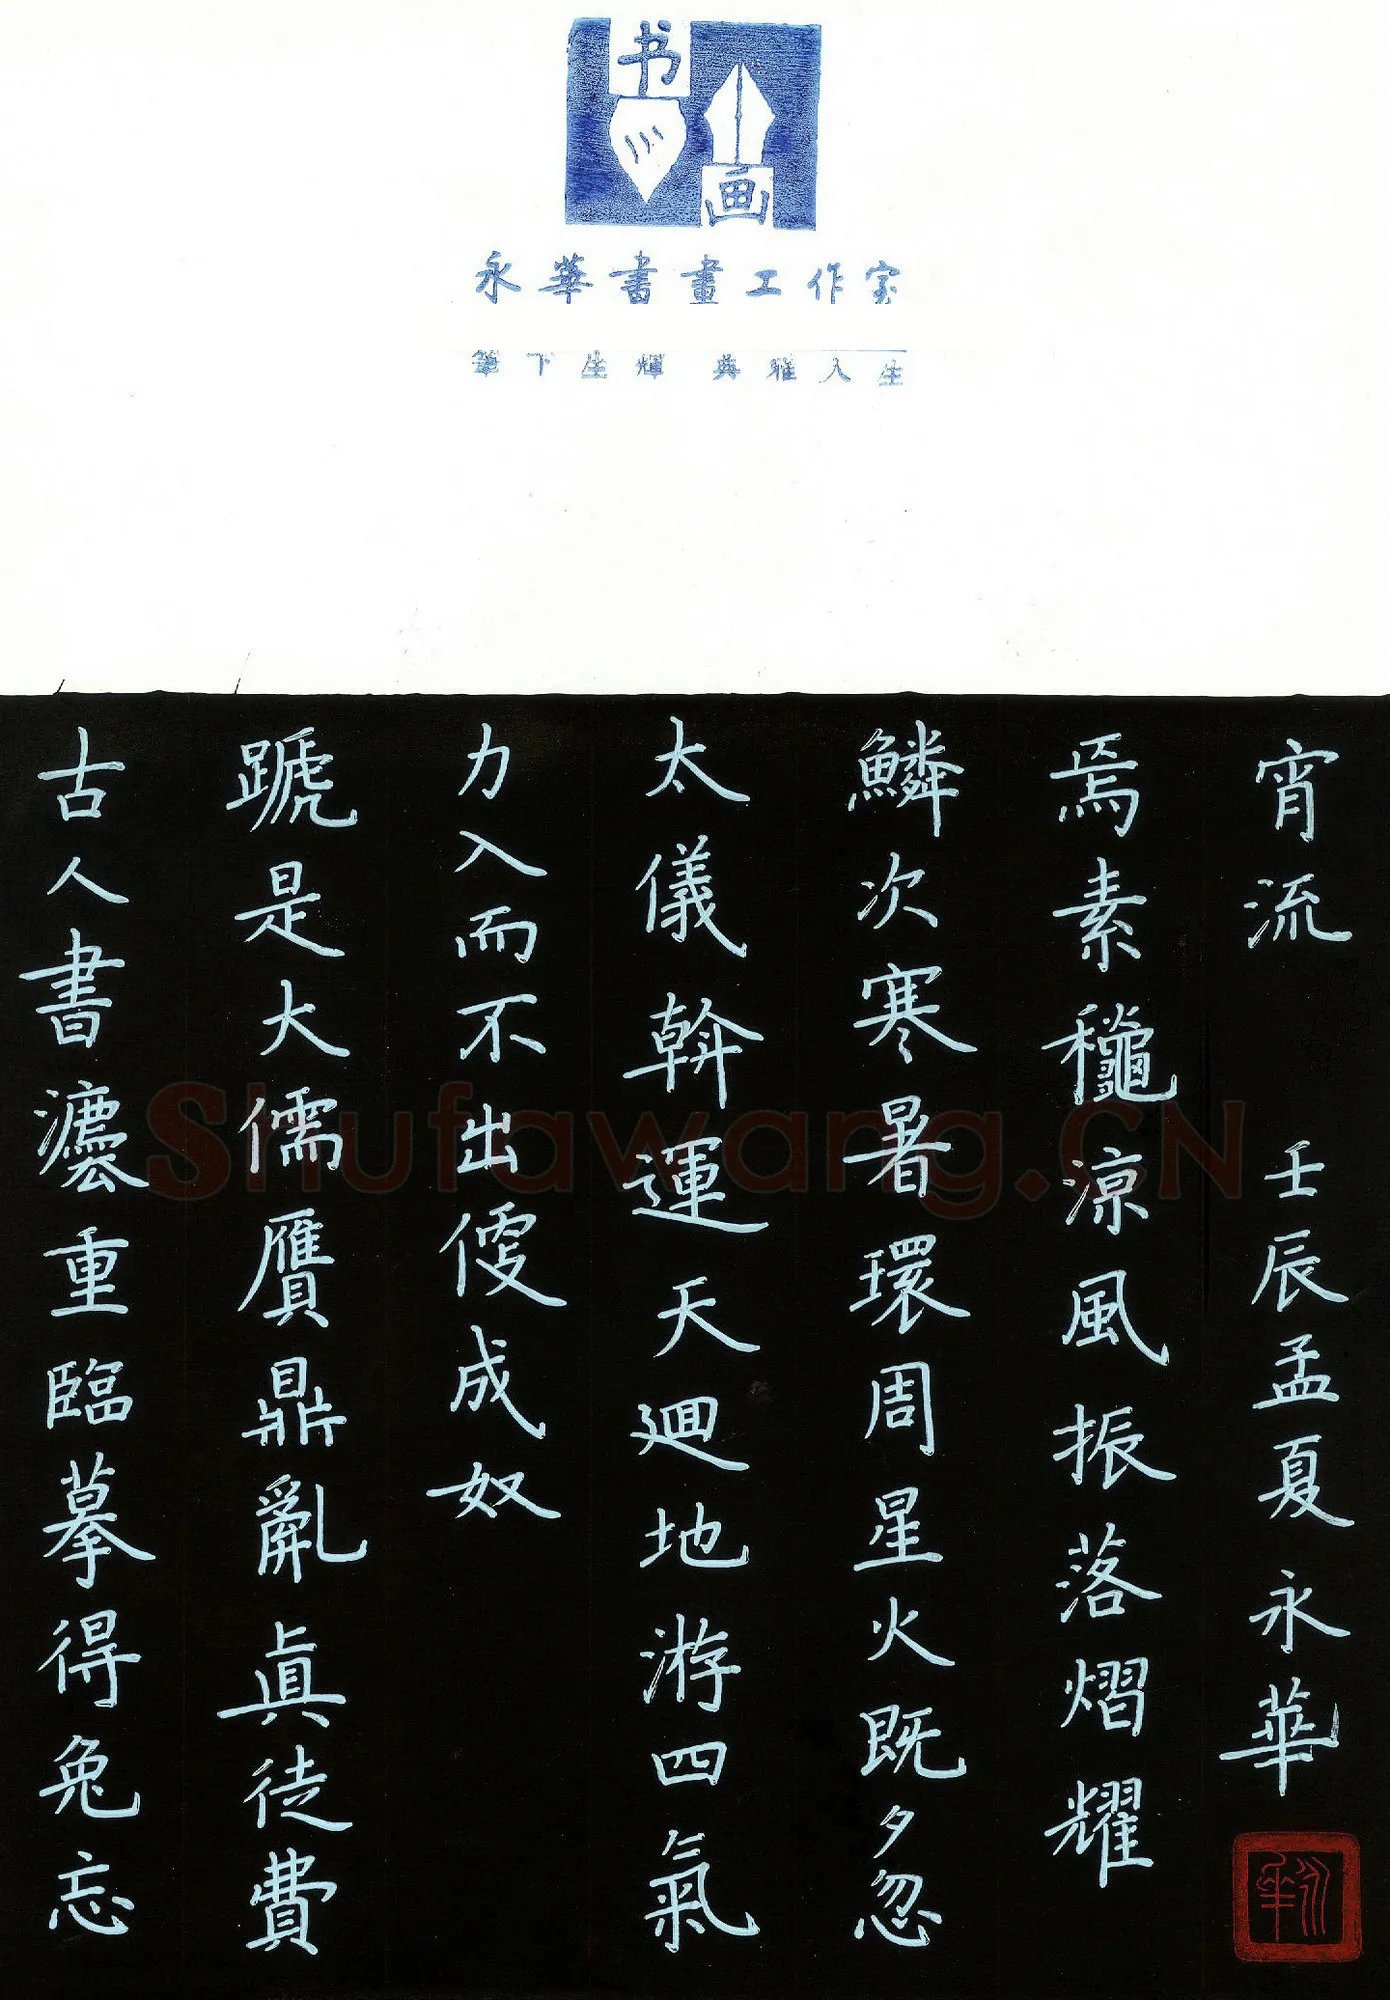 书
画
永華書畫工作室
筆下生輝 典雅人生
古人書灋重臨摹得兔忘
蹏是大儒贋鼎亂眞徒費
力入而不出傁成奴
太儀斡運天迴地游四氣
鱗次寒暑環周星火既夕忽
焉素穐涼風振落熠耀
宵流 壬辰孟夏永華
永華
Shufawang.CN